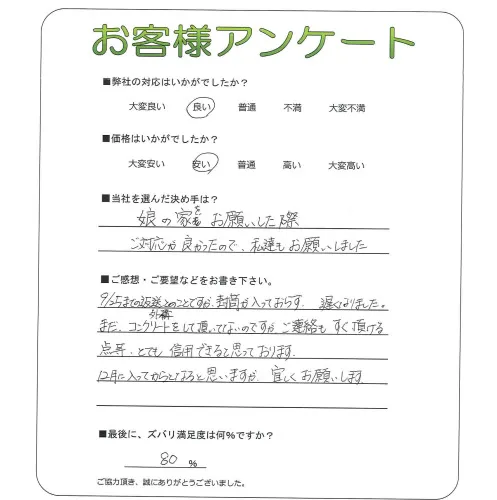 お客様アンケート
■弊社の対応はいかがでしたか?
大変良い 良い 普通 不満 大変不満
■価格はいかがでしたか?
大変安い 安い 普通 高い 大変高い
■当社を選んだ決め手は?
娘の家をお願いした際
ご対応が良かったので、私達もお願いしました
■ご感想・ご要望などをお書き下さい。
9/25までの返送とのことですが、封筒が入っておらず、遅くなりました。
外構
まだ、コンクリートをして頂いてないのですが、ご連絡もすぐ頂ける
点等、とても信用できると思っております。
12月に入ってからとなると思いますが、宜しくお願いします
■最後に、ズバリ満足度は何%ですか?
80 %
ご協力頂き、誠にありがとうございました。